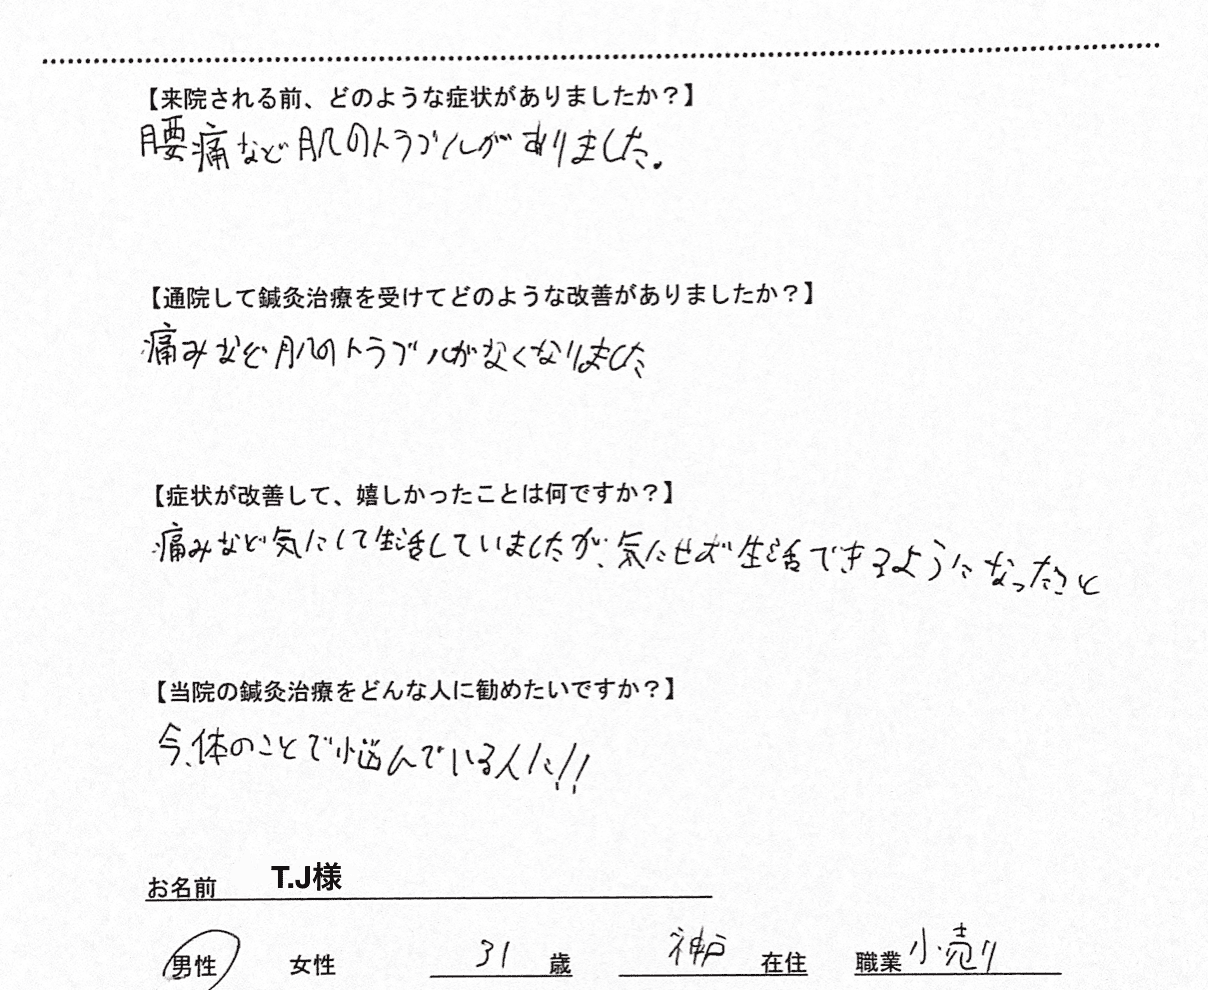 【来院される前、どのような症状がありましたか？】
腰痛など肌のトラブルがありました。
【通院して鍼灸治療を受けてどのような改善がありましたか？】
痛みなど肌のトラブルがなくなりました
【症状が改善して、嬉しかったことは何ですか？】
痛みなど気にして生活していましたが、気にせず生活できるようになったこと
【当院の鍼灸治療をどんな人に勧めたいですか？】
今、体のことで悩んでいる人に!!
お名前 T.J様
男性 女性 31 歳 神戸 在住 職業 小売り